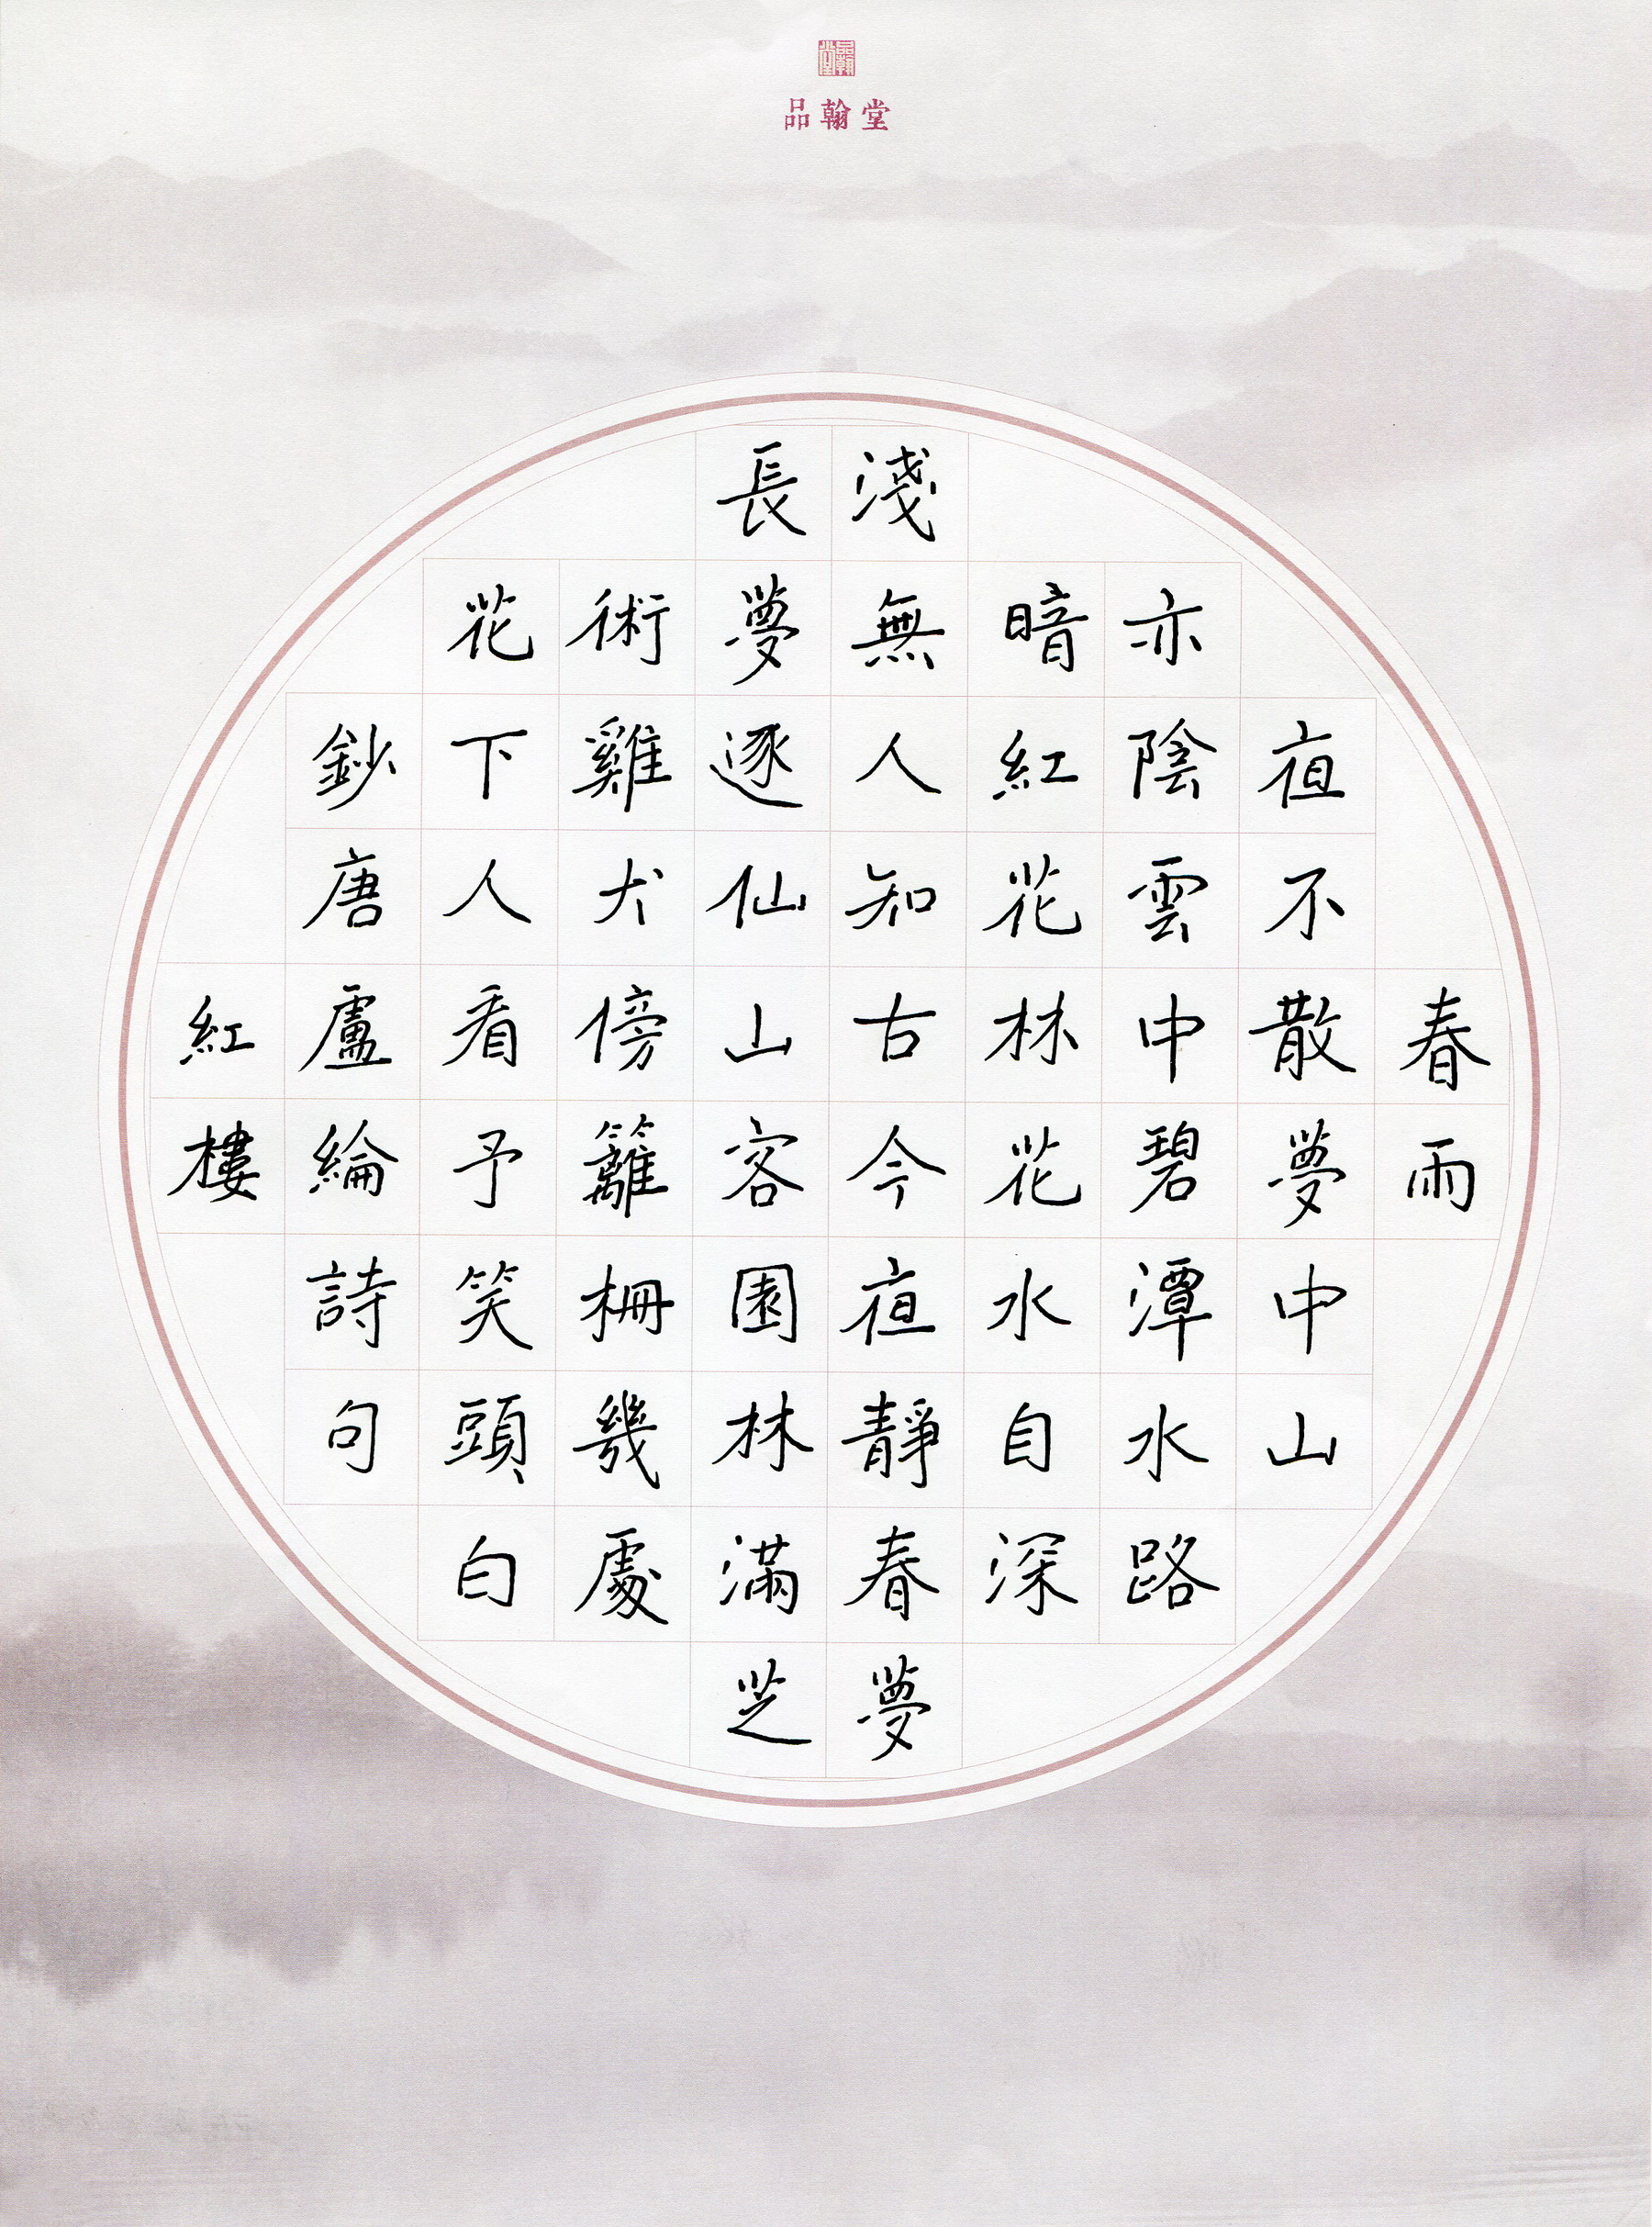 品翰堂
品翰堂
春雨
夜不散夢中山
亦陰雲中碧潭水路
暗紅花林花水自深
淺無人知古今夜靜春夢
長夢逐仙山客園林滿芝
術雞犬傍籬柵幾處
花下人看予笑頭白
鈔唐盧綸詩句
紅樓